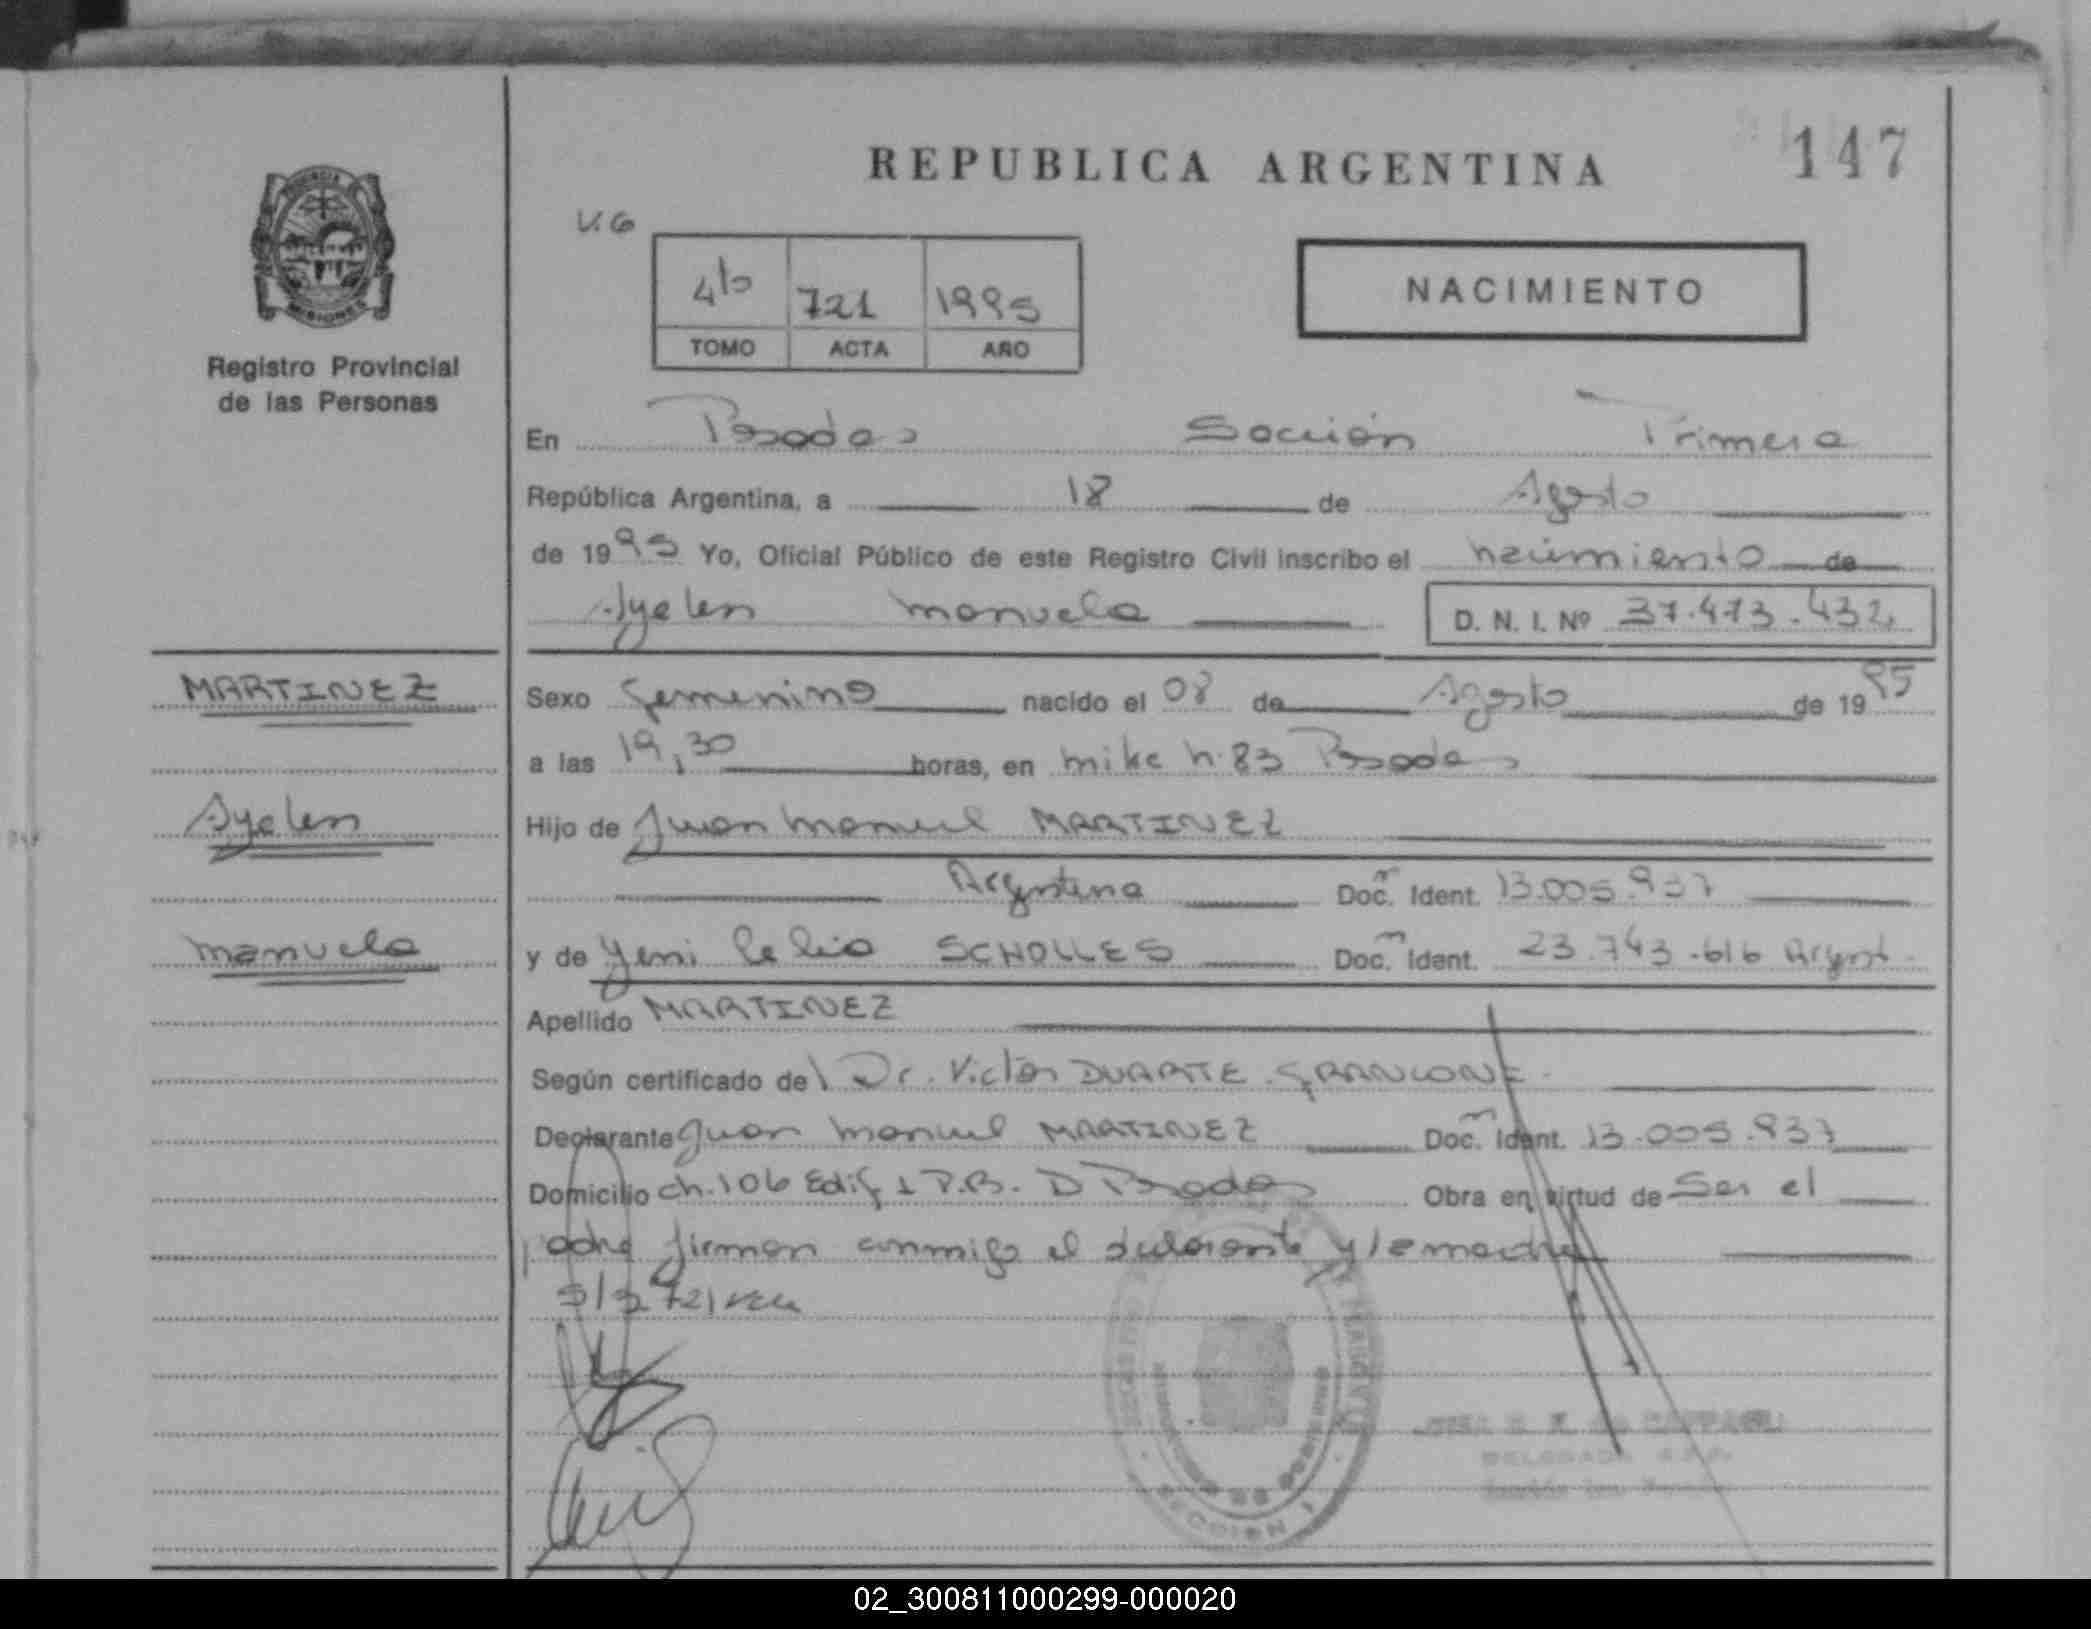 147
REPUBLICA ARGENTINA
PROVINCIA DE
MISIONES
Registro Provincial
de las Personas
V.G
4to 721 1995
TOMO ACTA AÑO
NACIMIENTO
En Posadas Sección Primera
República Argentina, a 18 de Agosto
de 1995 Yo, Oficial Público de este Registro Civil inscribo el nacimiento de
Ayelen Manuela D. N. I. Nº 37.473.432
MARTINEZ
Ayelen
Manuela
Sexo femenino nacido el 08 de Agosto de 1995
a las 19,30 horas, en mike n. 83 Posadas
Hijo de Juan Manuel MARTINEZ
Argentina Doc. Ident. 13.005.937
y de Yeni Celia SCHOLLES Doc. Ident. 23.743.616 Argent.
Apellido MARTINEZ
Según certificado del Dr. Victor DUARTE
Declarante Juan Manuel MARTINEZ Doc. Ident. 13.005.937
Domicilio ch. 106 Edif 1 P.B. D Posadas Obra en virtud de Ser el
padre firman conmigo el declarante y la madre
721 vale
SECCION 1
02_300811000299-000020